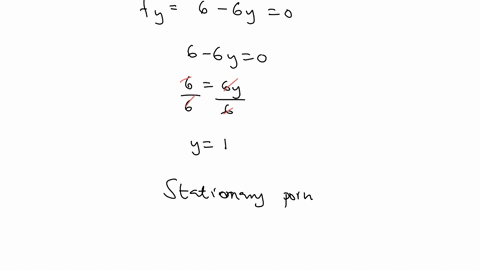 fy = 6 - 6y = 0
6 - 6y = 0
6/6 = 6y/6
y = 1
Stationary poin